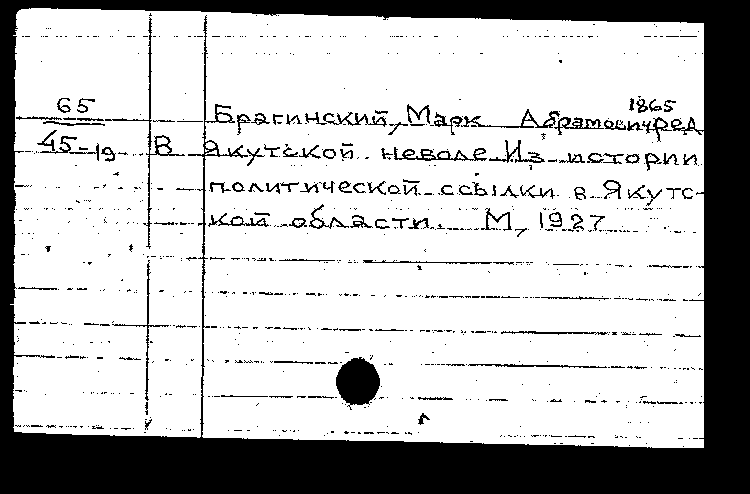 1865
65 Брагинский, Марк Абрамович, ред
45-19 В якутской неволе. Из истории
политической ссылки в Якутс-
кой области. М, 1927